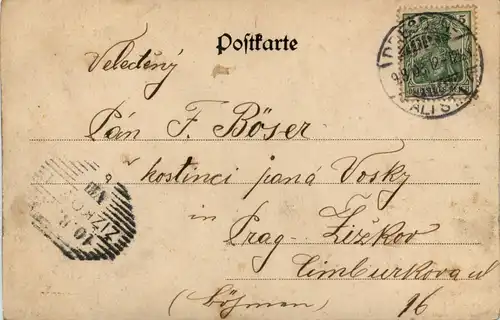 Postkarte
5
Veleděný
Pán F. Böser
v kostinci paná Vosky
in
Prag-Žižkov
Cimburkova ul
(Böhmen) 16
ALTST.
10.8.
VIII
ŽIŽKO